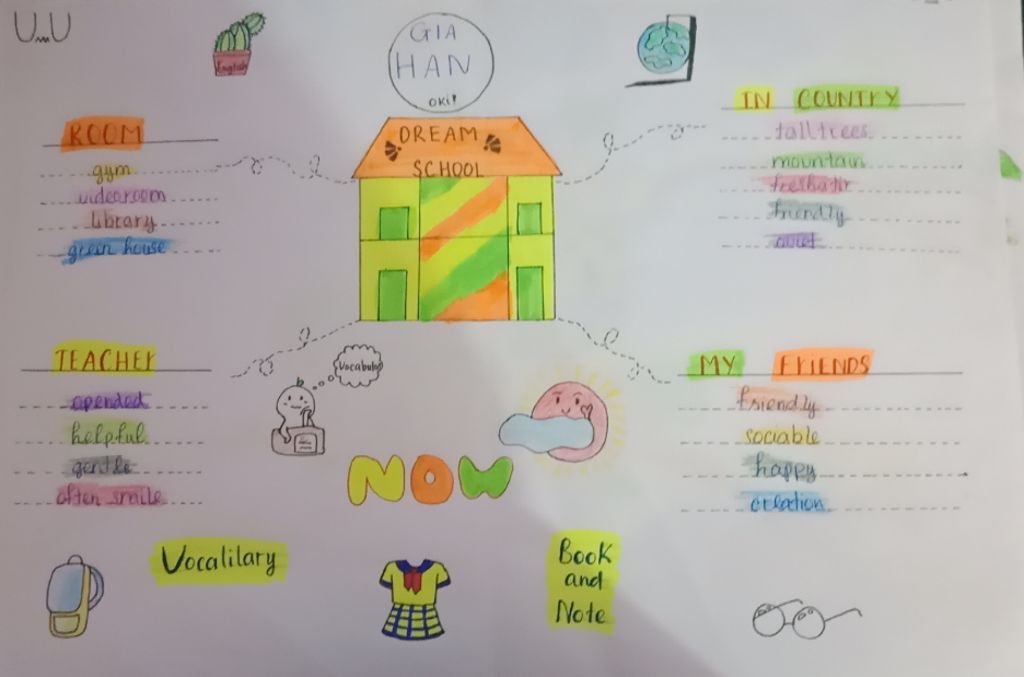 U...U
English
GIA
HAN
OKi!
DREAM
SCHOOL
ROOM
gym
videoroom
library
green house
IN COUNTRY
tall trees
mountain
freshair
friendly
quiet
TEACHER
opended
helpful
gentle
often smile
Vocabulary
MY FRIENDS
friendly
sociable
happy
creation
NOW
Vocalilary
Book
and
Note